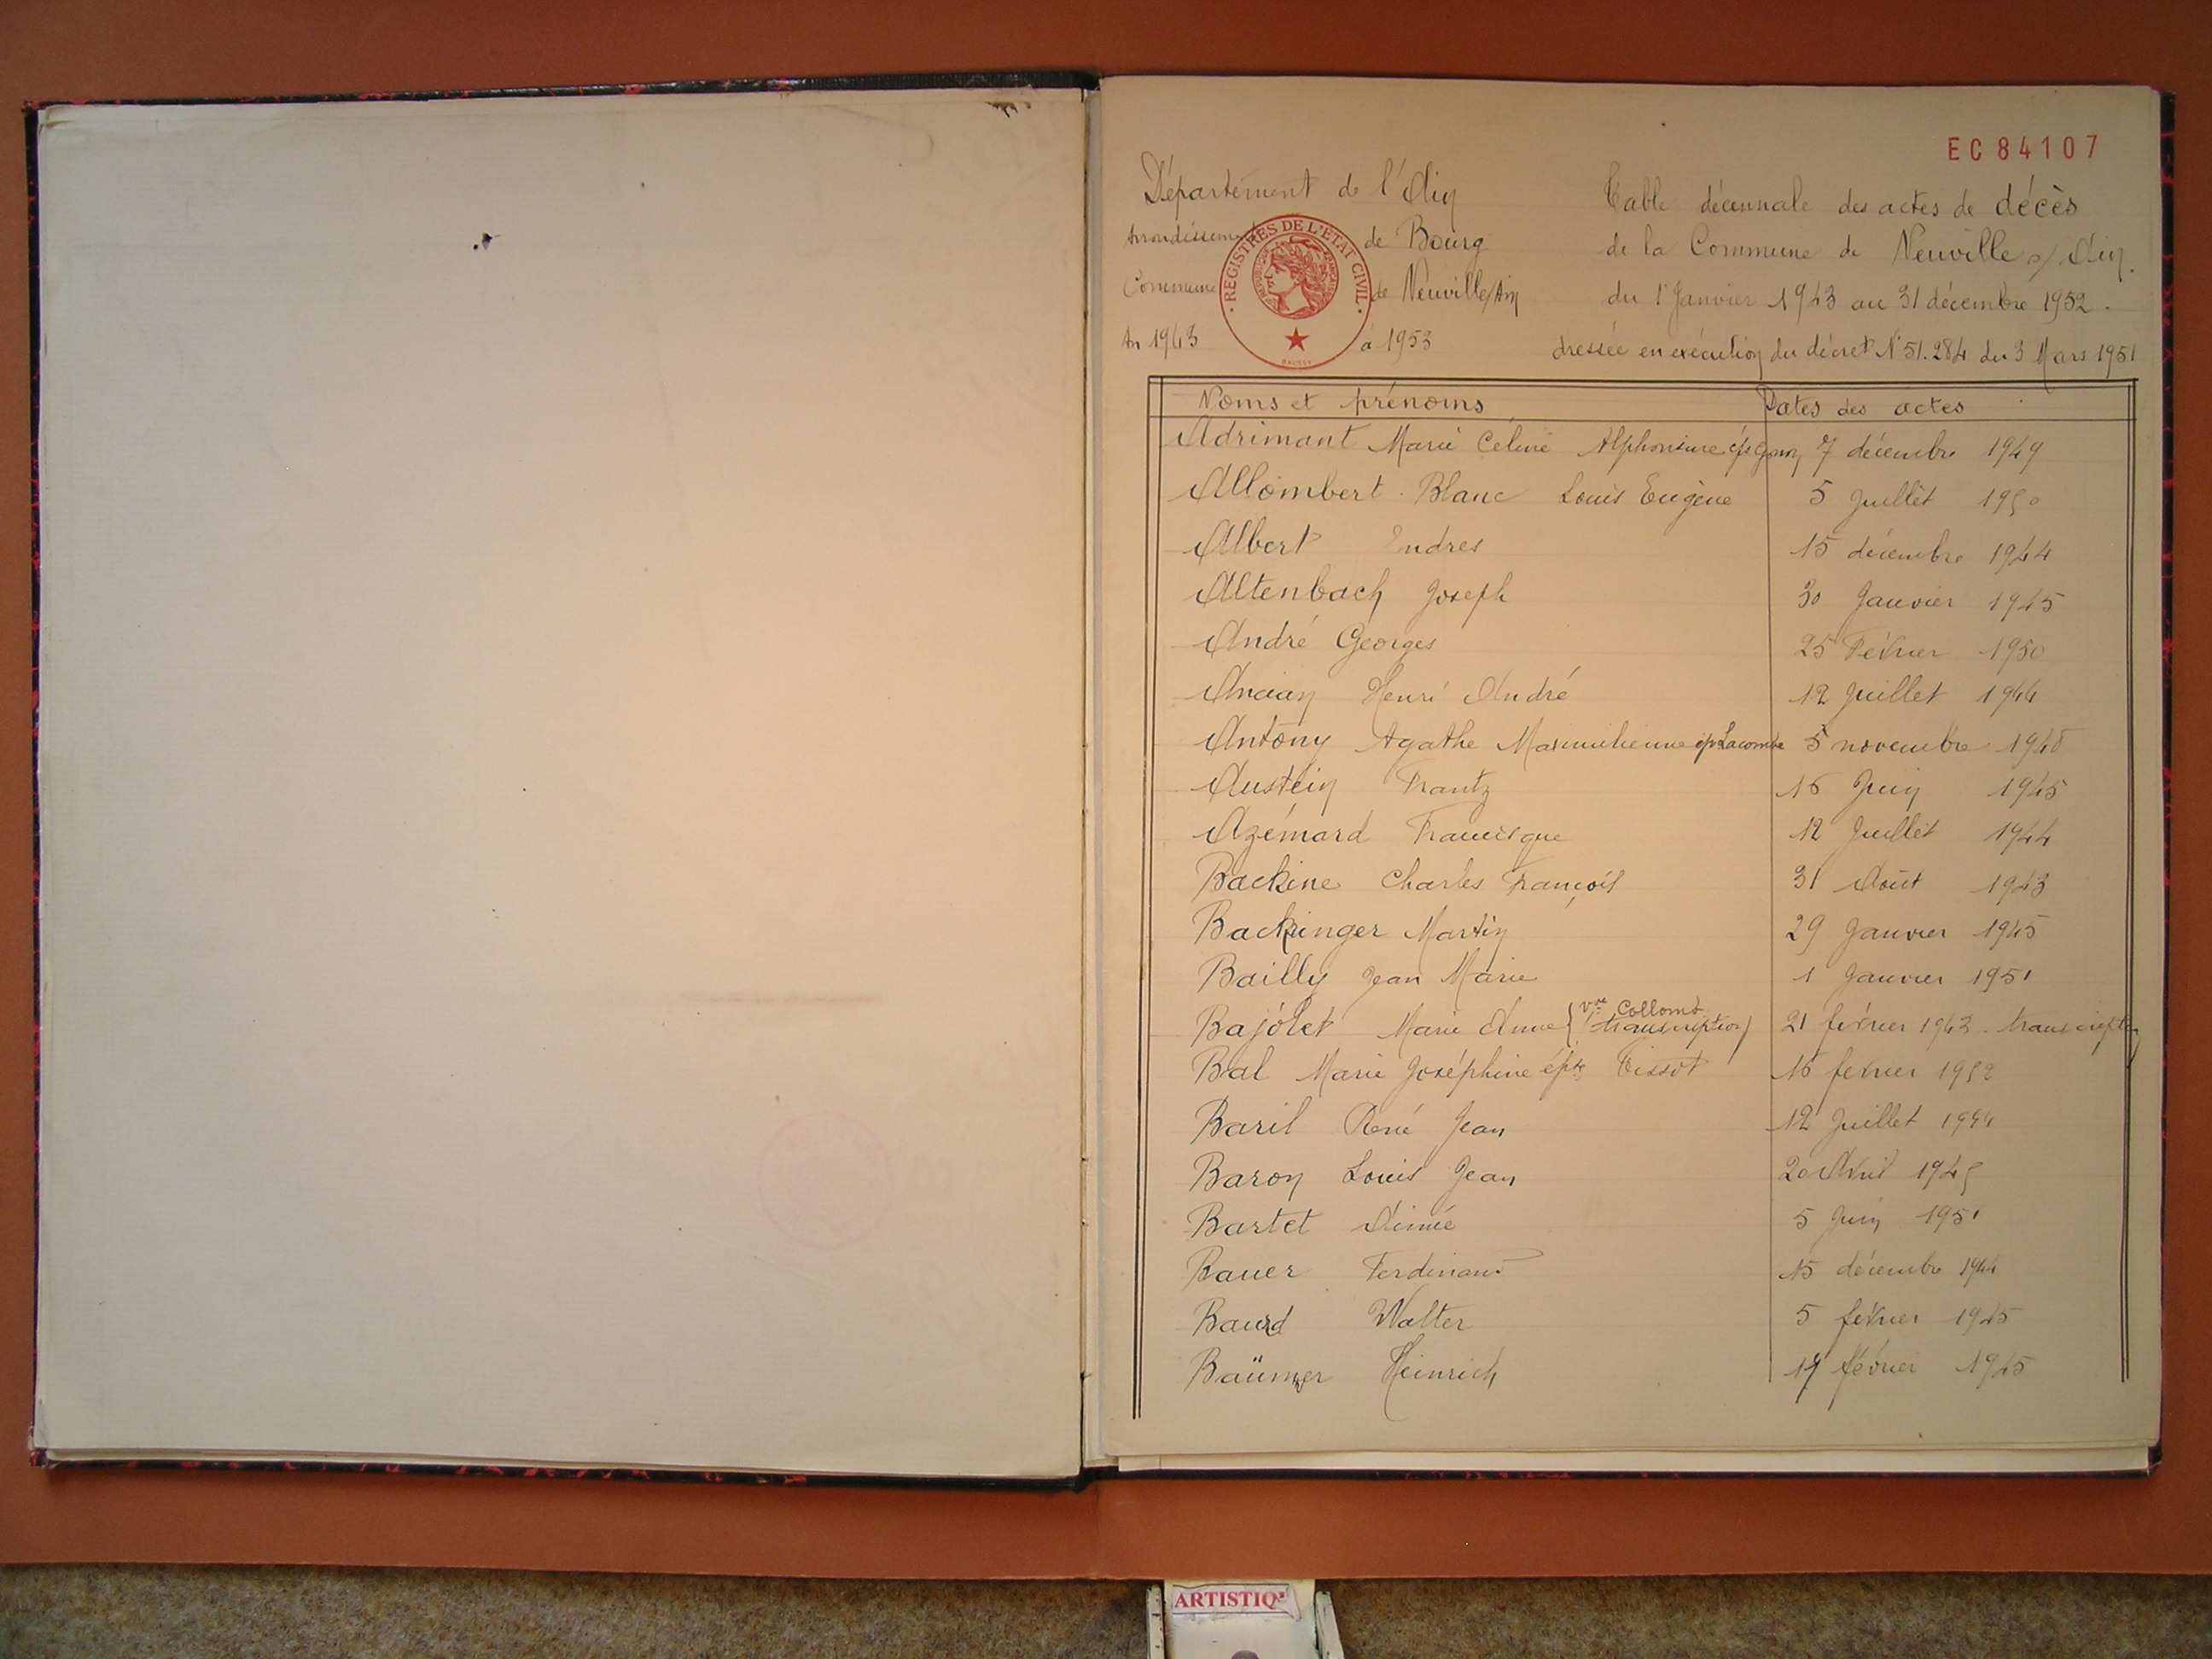 EC 84107
Département de l'Ain
Table décennale des actes de décès
Arrondissement de Bourg
de la Commune de Neuville s/ Ain.
Commune de Neuville/Ain
du 1 Janvier 1943 au 31 décembre 1952.
An 1943 à 1953
dressée en exécution du décret N° 51.284 du 3 Mars 1951
REGISTRES DE L'ETAT CIVIL
Noms et prénoms Dates des actes
Adrimant Marie Céline Alphonsine épse 7 décembre 1949
Allombert-Blanc Louis Eugène 5 Juillet 1950
Albert Endres 15 décembre 1944
Altenbach Joseph 30 Janvier 1945
André Georges 25 Février 1950
Ancian Henri André 12 Juillet 1944
Antony Agathe Maximilienne épse Lacombe 5 novembre 1948
Austein Frantz 16 Juin 1945
Azémard Francisque 12 Juillet 1944
Backine Charles François 31 Août 1943
Backinger Martin 29 Janvier 1945
Bailly Jean Marie 1 Janvier 1951
Bajolet Marie Anne (vve Collomb transcription) 21 février 1943 - transcription
Bal Marie Joséphine épse Tissot 16 fevrier 1952
Baril René Jean 12 Juillet 1944
Baron Louis Jean 20 Avril 1945
Bartet Aimée 5 Juin 1951
Bauer Ferdinand 15 décembre 1944
Baurd Walter 5 février 1945
Baümer Heinrich 17 février 1945
ARTISTIQ